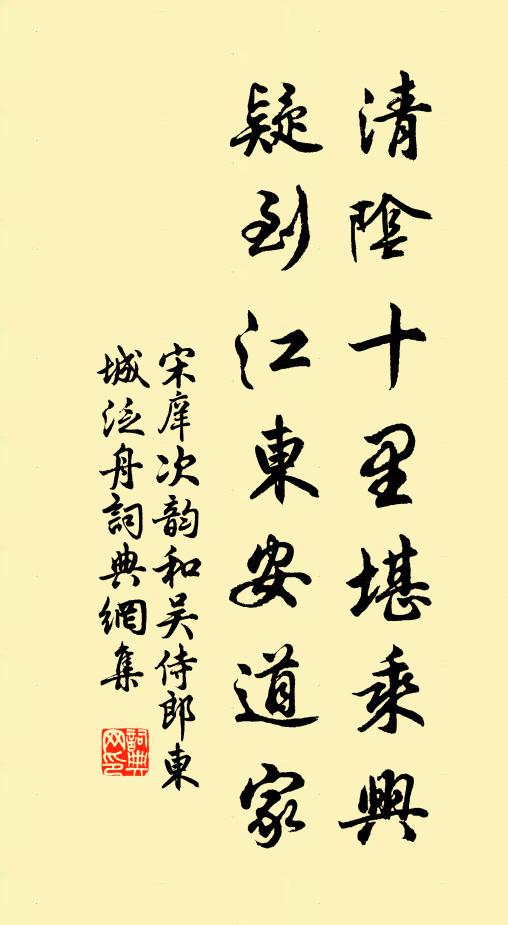 清陰十里堪乘興
疑到江東安道家
宋庠次韵和吴侍郎東
城泛舟詞典網集
詞典
网印